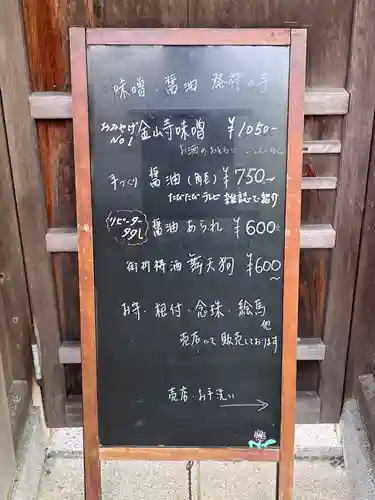 味噌・醤油 発祥の寺
おみやげNo.1 金山寺味噌 ￥1050-
お酒のおともに
手づくり 醤油(角長) ￥750~
たびたびテレビ 雑誌で紹介
リピーター多し 醤油あられ ￥600
御祈祷酒 舞天狗 ￥600~
お守・根付・念珠・絵馬 他
売店にて販売しております
売店・お手洗い →